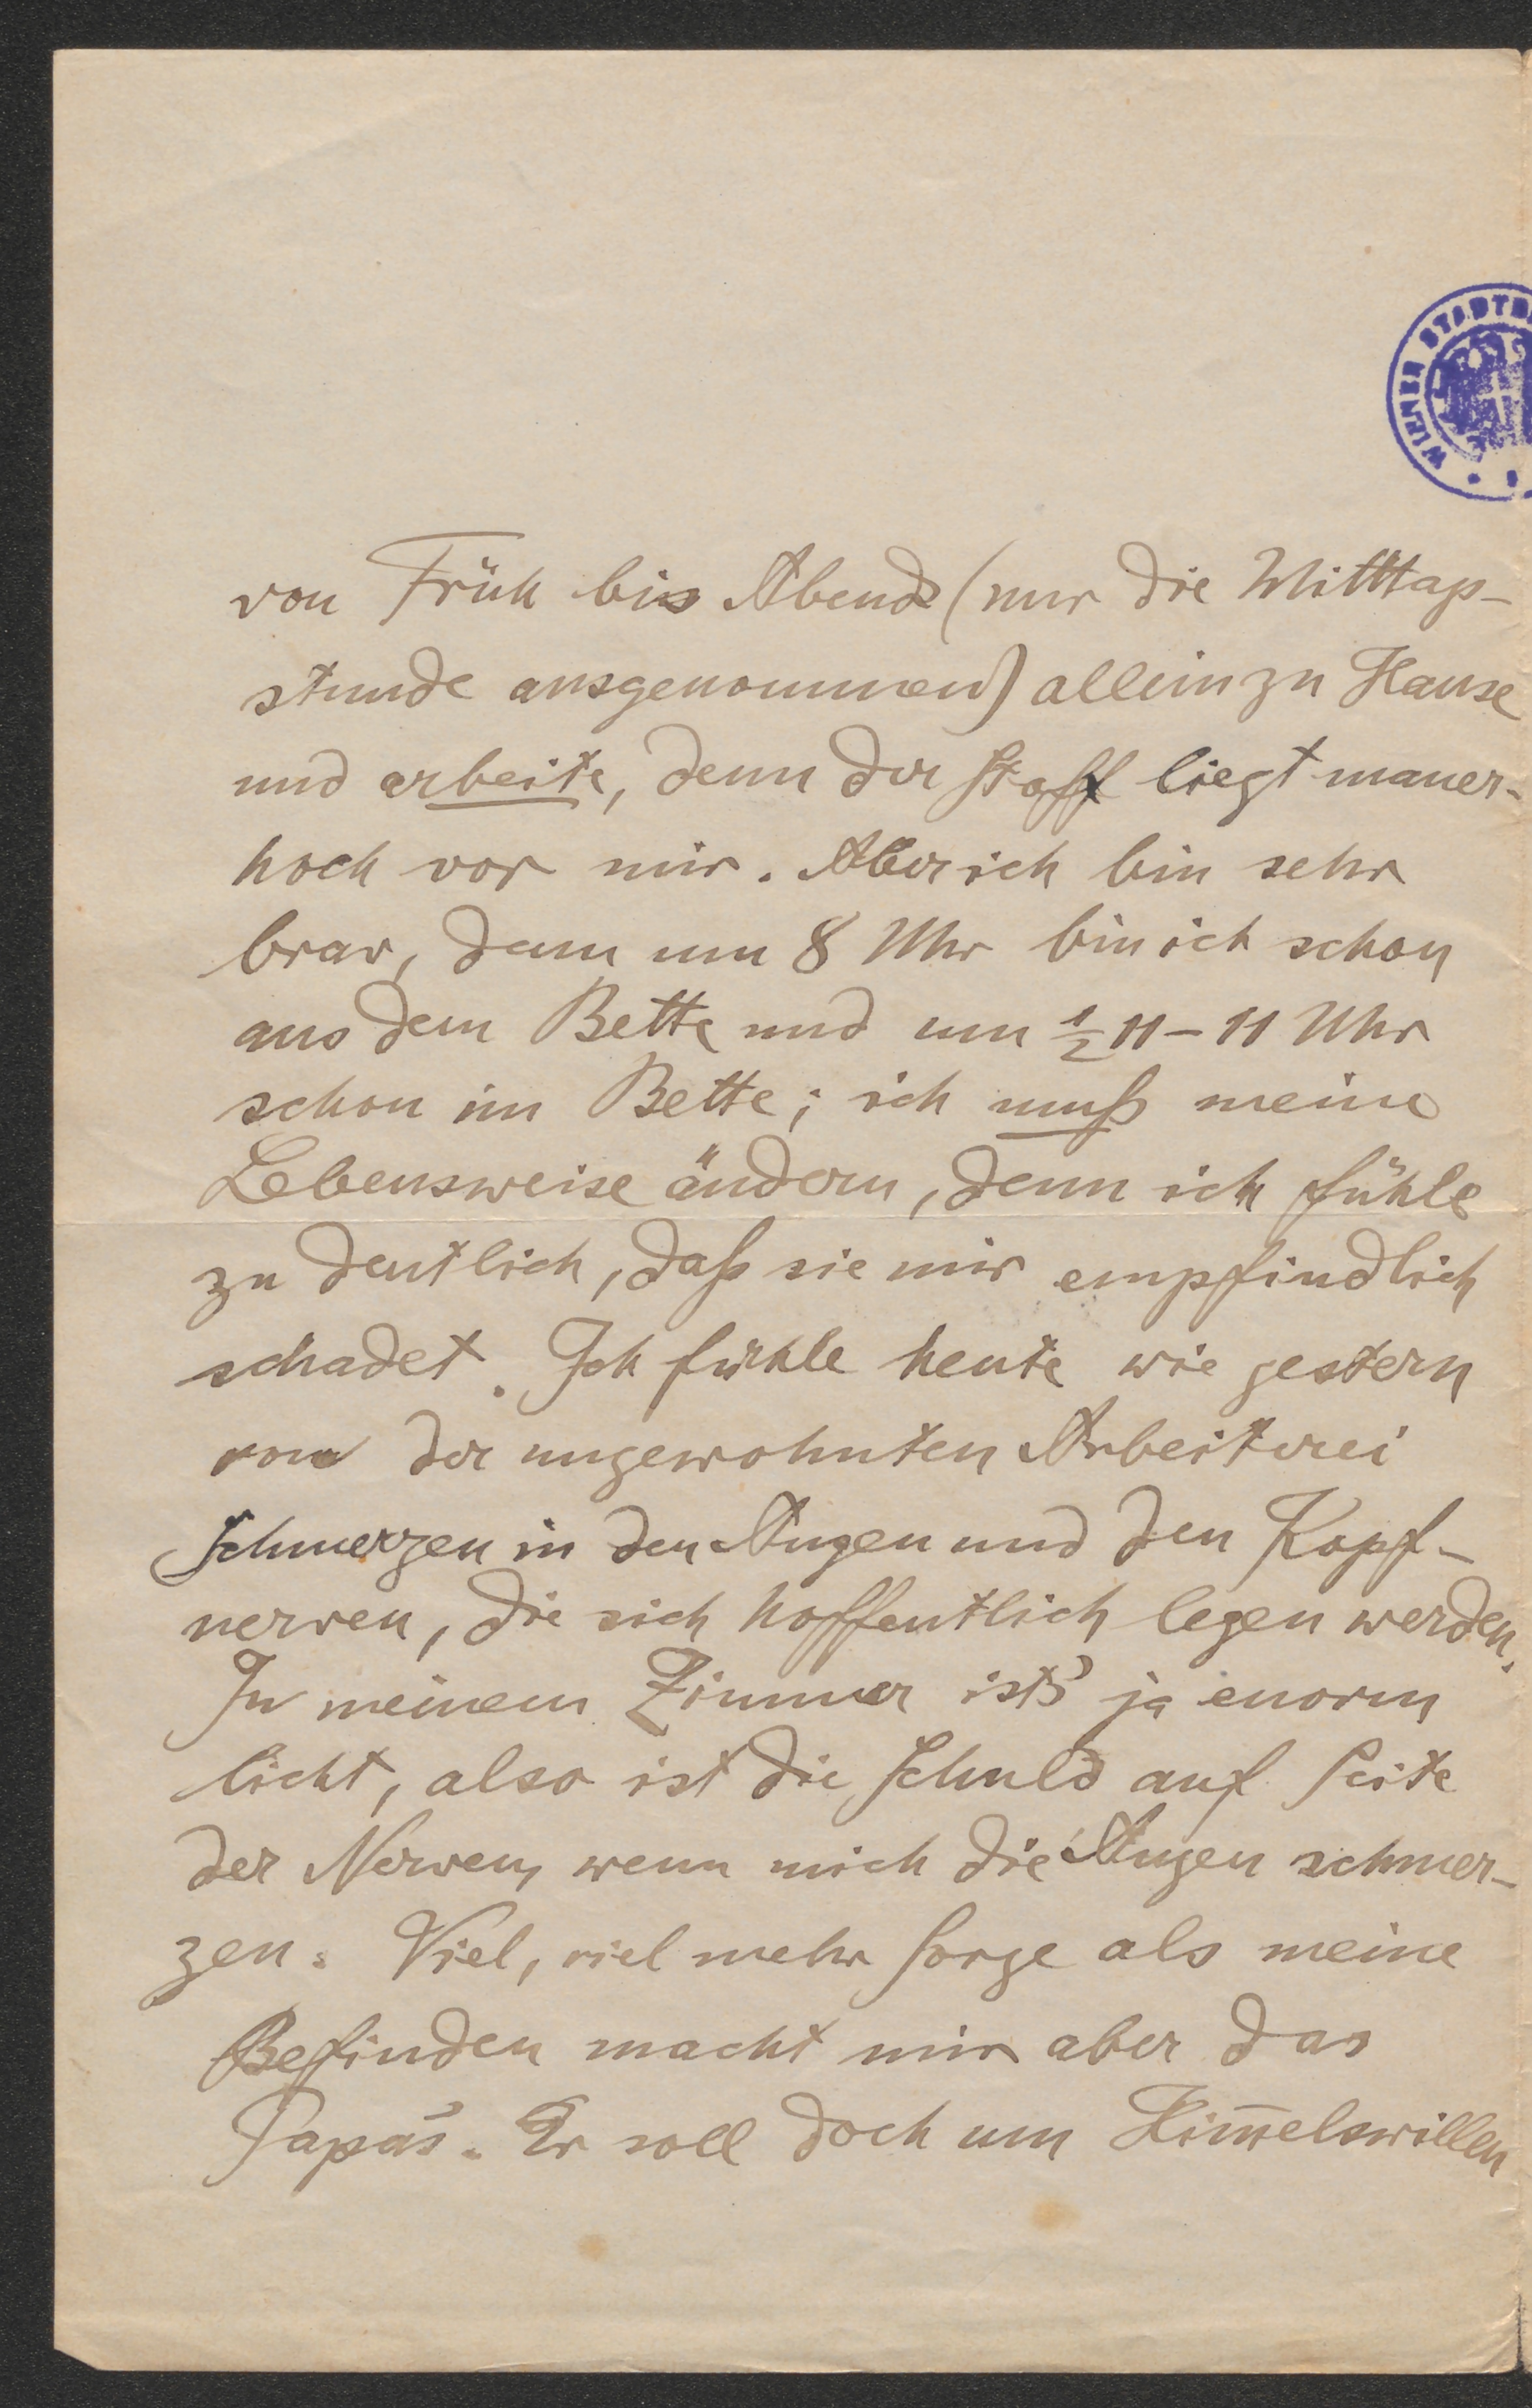 WIENER STADTB
von Früh bis Abends (nur die Mittags-
stunde ausgenommen) allein zu Hause
und arbeite, denn der Stoff liegt mauer-
hoch vor mir. Aber ich bin sehr
brav, denn um 8 Uhr bin ich schon
aus dem Bette und um ½ 11 – 11 Uhr
schon im Bette; ich muß meine
Lebensweise ändern, denn ich fühle
zu deutlich, daß sie mir empfindlich
schadet. Ich fühle heute wie gestern
von der ungewohnten Arbeiterei
Schmerzen in den Augen und den Kopf-
nerven, die sich hoffentlich legen werden.
In meinem Zimmer ists' ja enorm
licht, also ist die Schuld auf Seite
der Nerven, wenn mich die Augen schmer-
zen. Viel, viel mehr Sorge als meine
Befinden macht mir aber das
Papas'. Er soll doch um Him̅elswillen